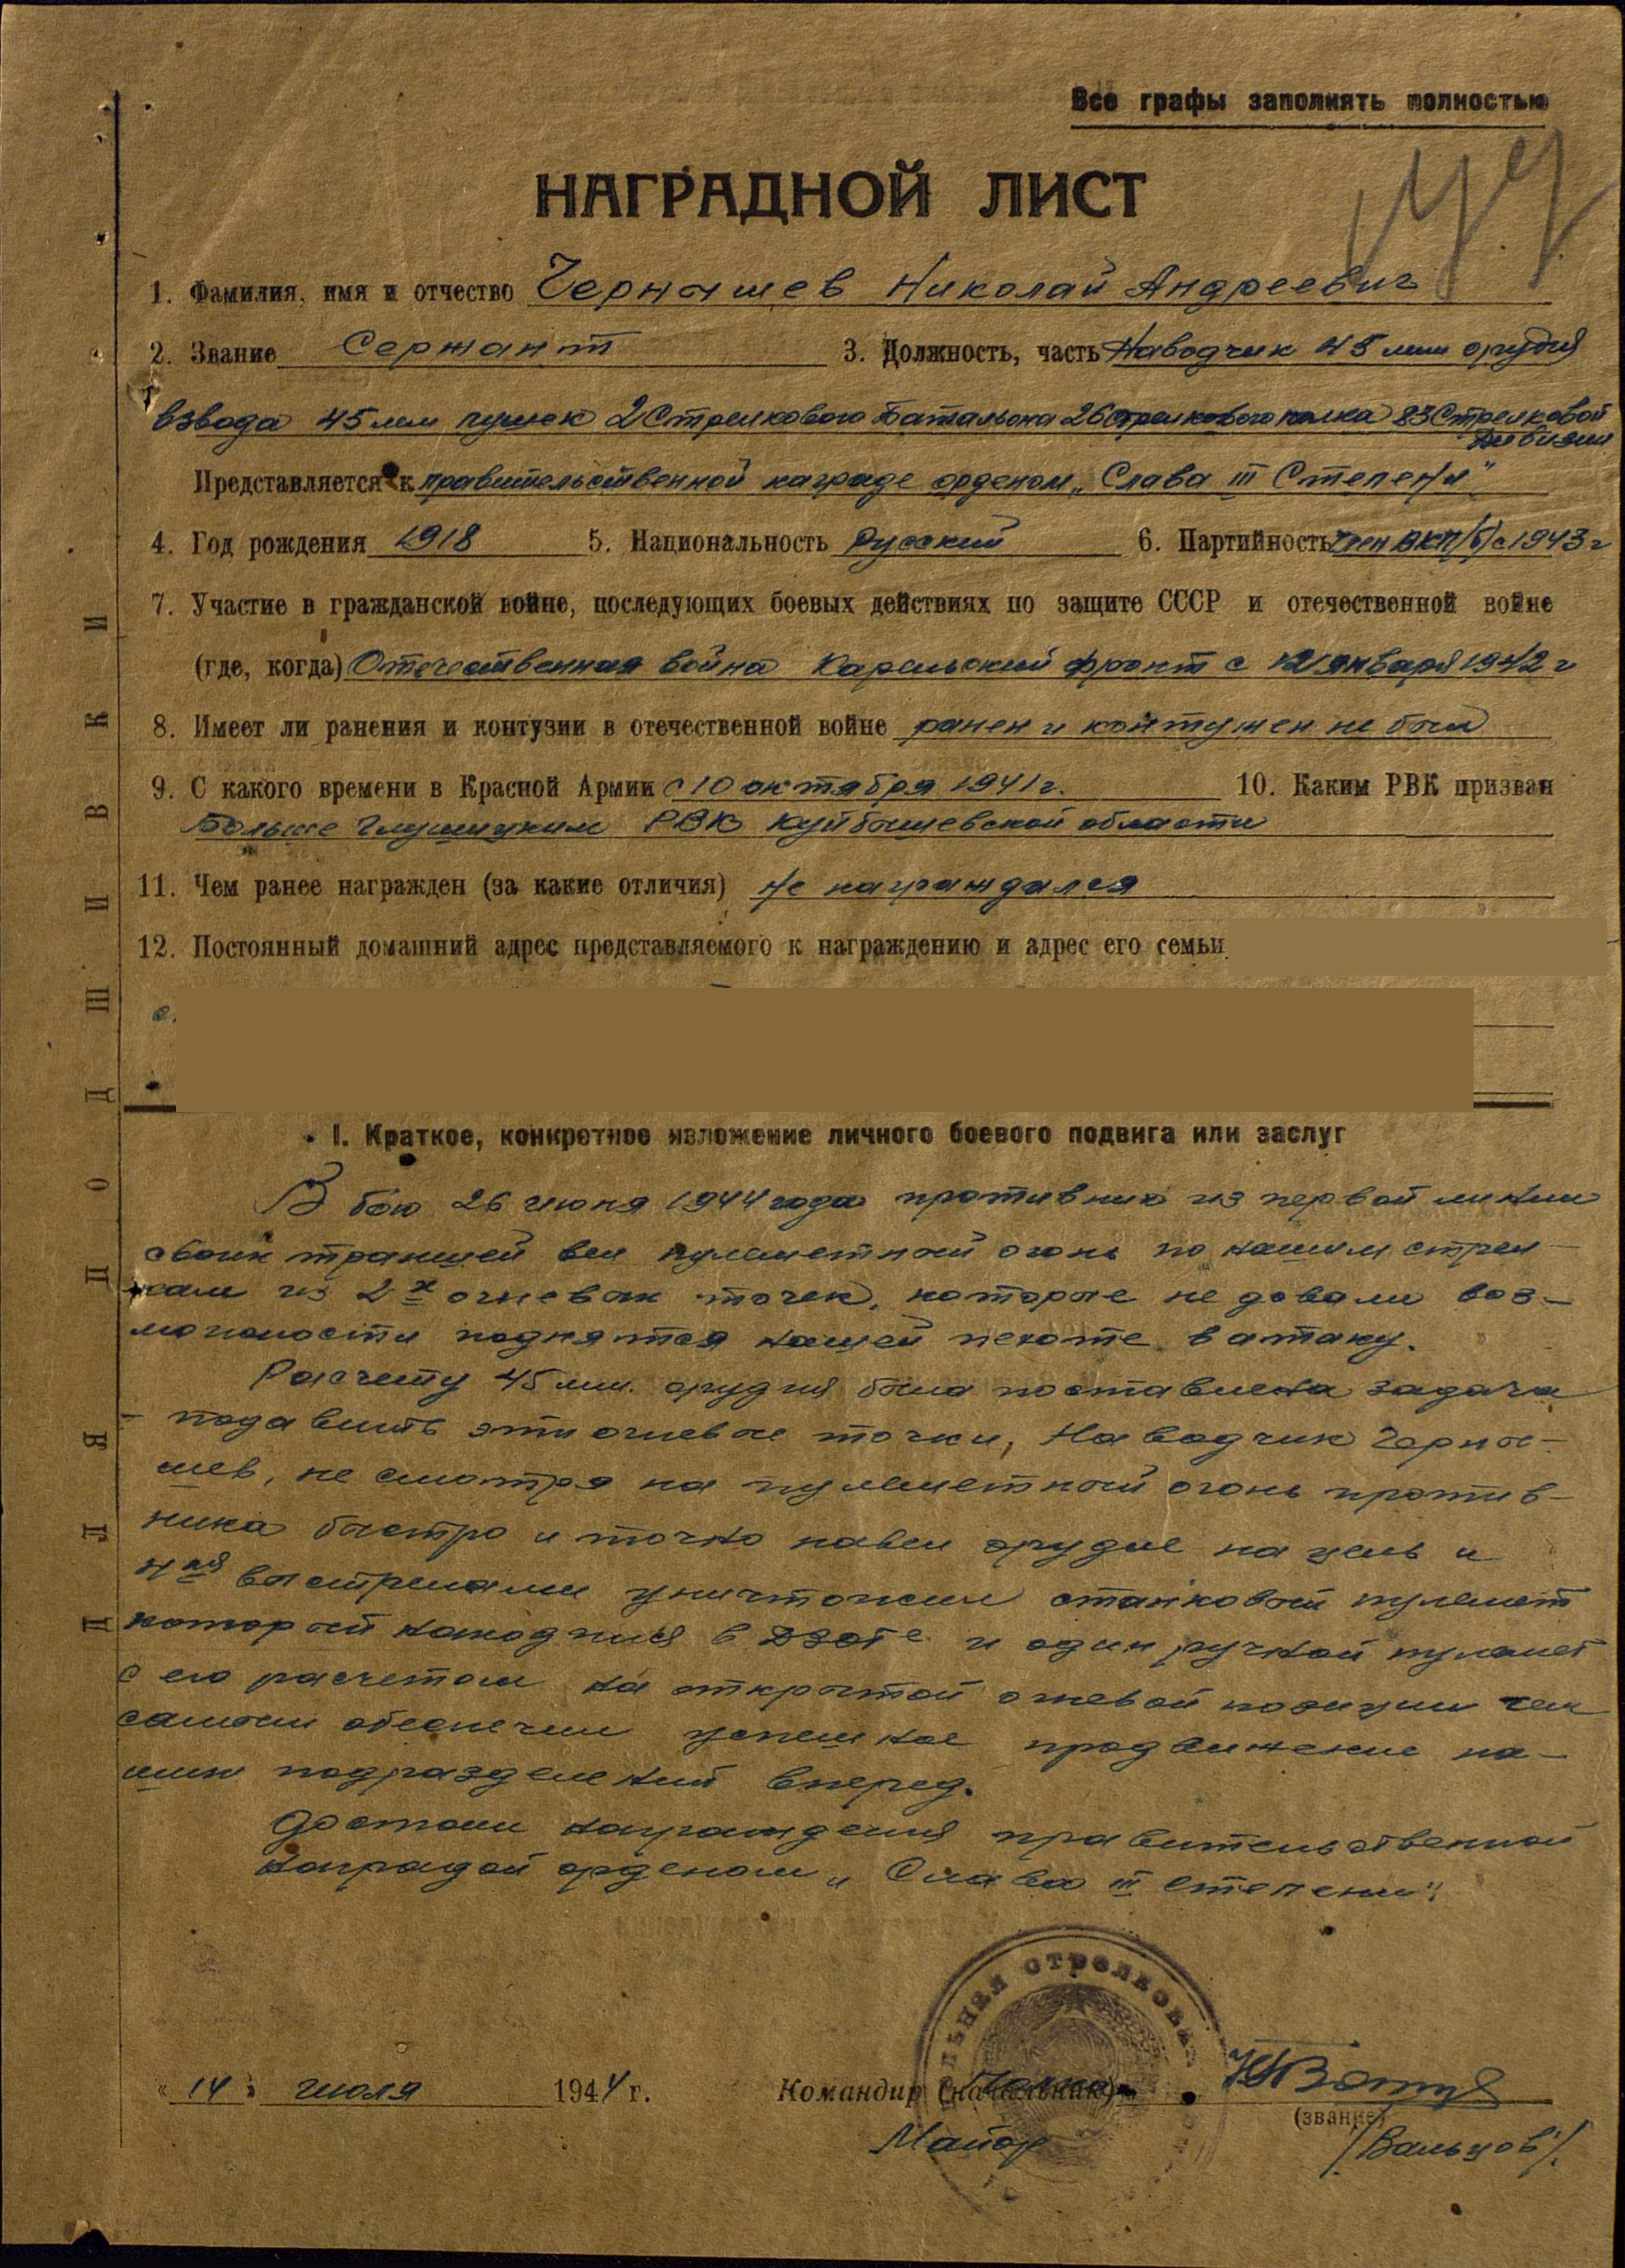 Все графы заполнять полностью
НАГРАДНОЙ ЛИСТ
1. Фамилия, имя и отчество Чернышев Николай Андреевич
2. Звание Сержант 3. Должность, часть Наводчик 45 мм орудия
взвода 45 мм пушек 2 Стрелкового Батальона 26 стрелкового полка 83 Стрелковой
дивизии
Представляется к правительственной награде орденом „Слава III Степени"
4. Год рождения 1918 5. Национальность Русский 6. Партийность член ВКП/б/ с 1943 г
7. Участие в гражданской войне, последующих боевых действиях по защите СССР и отечественной войне
(где, когда) Отечественная война Карельский фронт с 12 января 1942 г
8. Имеет ли ранения и контузии в отечественной войне ранен и контужен не был
9. С какого времени в Красной Армии с 10 октября 1941 г. 10. Каким РВК призван
Больше Глушицким РВК Куйбышевской области
11. Чем ранее награжден (за какие отличия) не награждался
12. Постоянный домашний адрес представляемого к награждению и адрес его семьи
с.
I. Краткое, конкретное изложение личного боевого подвига или заслуг
В бою 26 июня 1944 года противник из первой линии
своих траншей вел пулеметный огонь по нашим стрел-
кам из 2х огневых точек, которые не давали воз-
можности поднятся нашей пехоте в атаку.
Расчету 45 мм. орудия была поставлена задача
- подавить эти огневые точки, Наводчик Черны-
шев, не смотря на пулеметный огонь против-
ника быстро и точно навел орудие на цель и
4мя выстрелами уничтожил станковый пулемет
который находился в ДЗОТе и один ручной пулемет
с его расчетом на открытой огневой позиции чем
самым обеспечил успешное продвижение на-
ших подразделений вперед.
Достоин награждения правительственной
наградой орденом „Слава III степени".
СТРЕЛКОВА
« 14 » июля 1944 г. Командир (начальник)
(звание)
Майор /Вальцов/.
ПОДЛЯ ПОДШИВКИ